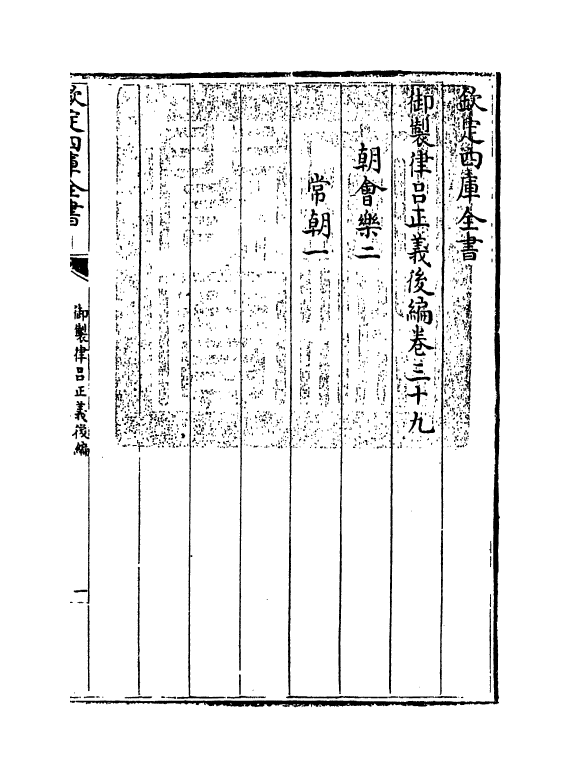 欽定四庫全書
御製律呂正義後編卷三十九
朝會樂二
常朝一
欽定四庫全書
御製律呂正義後編
一